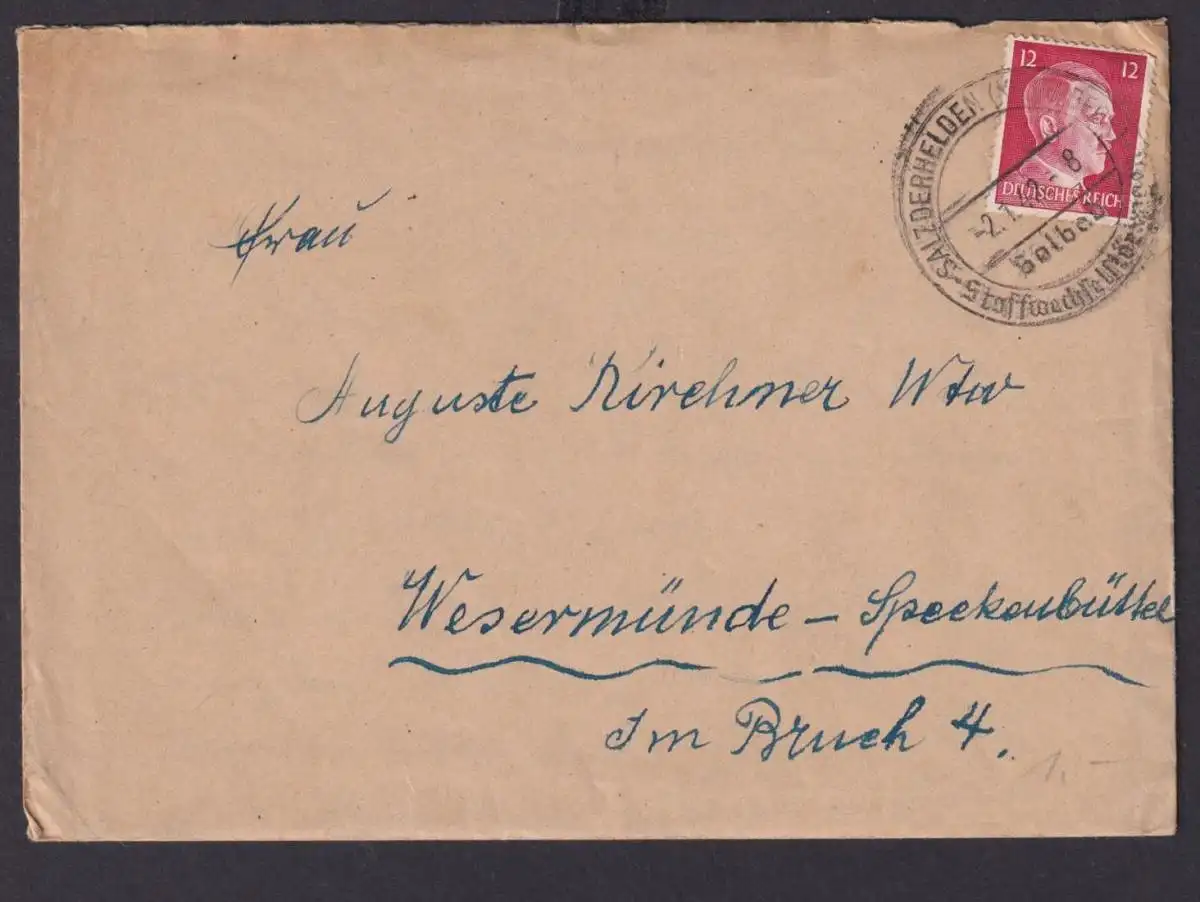 12 12
DEUTSCHES REICH
SALZDERHELDEN
-2.1. - 8
Solbad
Stoffwechsel
Frau
Auguste Kirchner Wtw
Wesermünde – Speckenbüttel
Im Bruch 4.
1,–